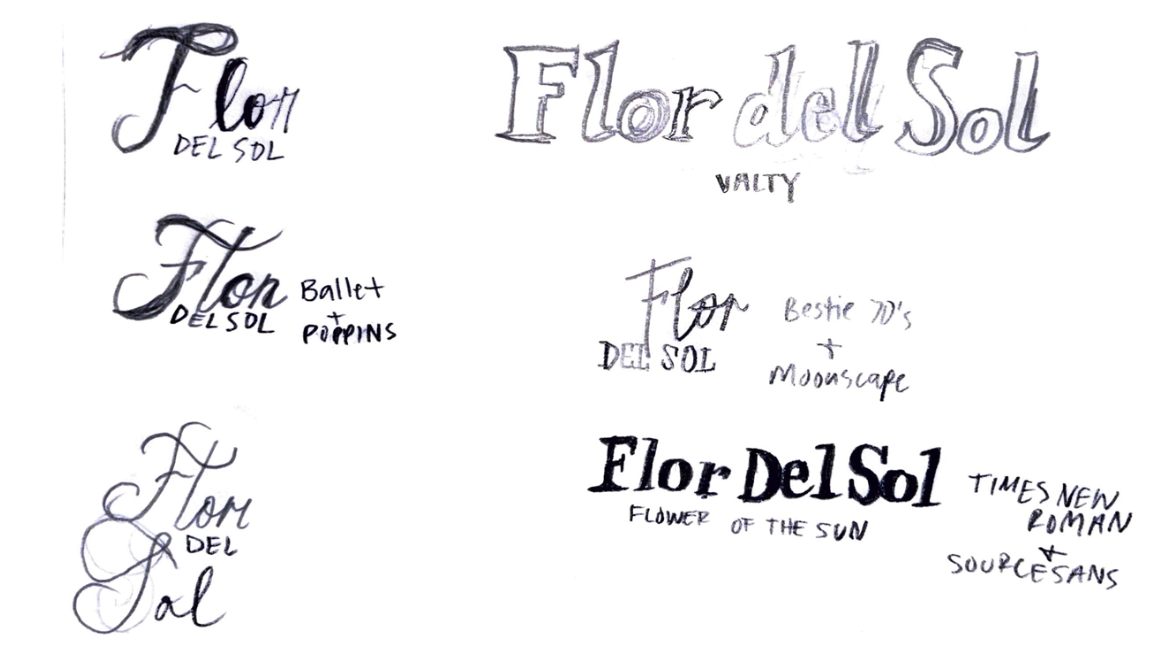 Flor
DEL SOL
Flor del Sol
VALTY
Flor
DEL SOL
Ballet
+
POPPINS
Flor
DEL SOL
Bestie 70's
+
Moonscape
Flor
DEL
Sol
Flor Del Sol
FLOWER OF THE SUN
TIMES NEW
ROMAN
+
SOURCE SANS